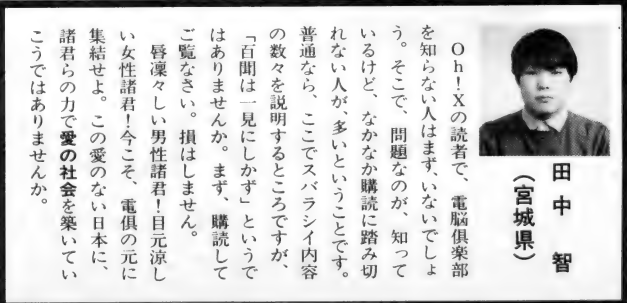 田中 智
(宮城県)
Oh!Xの読者で、電脳倶楽部
を知らない人はまず、いないでしょ
う。そこで、問題なのが、知って
いるけど、なかなか購読に踏み切
れない人が、多いということです。
普通なら、ここでスバラシイ内容
の数々を説明するところですが、
「百聞は一見にしかず」というで
はありませんか。まず、購読して
ご覧なさい。損はしません。
唇凜々しい男性諸君!目元涼し
い女性諸君!今こそ、電倶の元に
集結せよ。この愛のない日本に、
諸君らの力で愛の社会を築いてい
こうではありませんか。